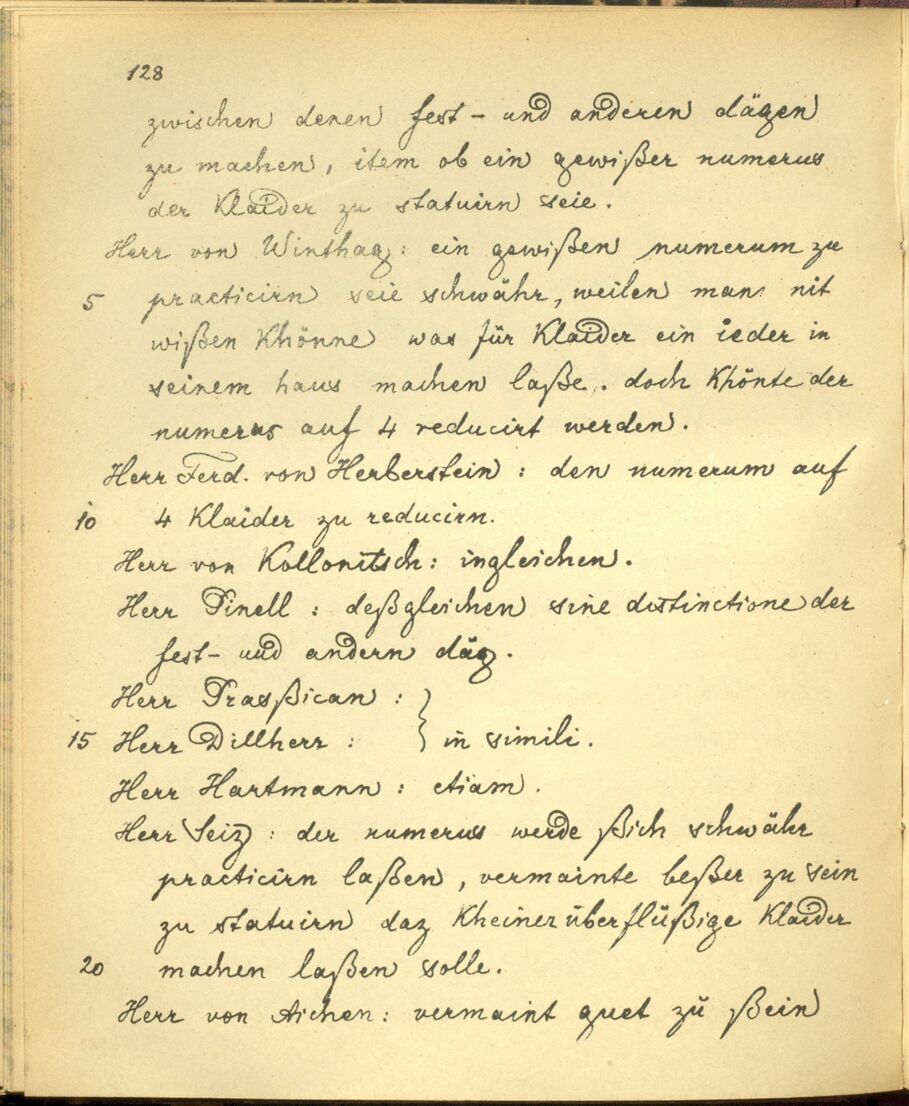 128
zwischen denen fest- und anderen dägen
zu machen, item ob ein gewißer numerus
der Klaider zu statuirn seie.
Herr von Winthag: ein gewißen numerum zu
5 practicirn seie schwähr, weilen man nit
wißen Khönne was für Klaider ein ieder in
seinem haus machen laße. doch Khönte der
numerus auf 4 reducirt werden.
Herr Ferd. von Herberstein: den numerum auf
10 4 Klaider zu reducirn.
Herr von Kollonitsch: ingleichen.
Herr Pinell: deßgleichen sine distinctione der
fest- und andern däg.
Herr Prasßican:
15 Herr Dillherr: } in simili.
Herr Hartmann: etiam.
Herr Seiz: der numerus werde ßich schwähr
practicirn laßen, vermainte beßer zu sein
zu statuirn daz Kheiner überflüßige Klaider
20 machen laßen solle.
Herr von Aichen: vermaint guet zu ßein